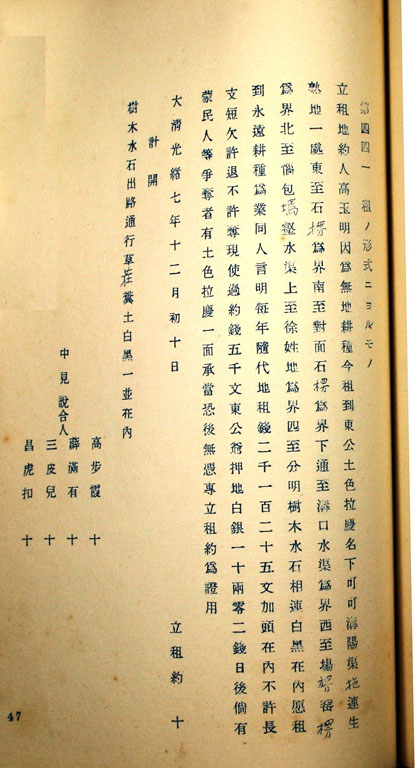 第四四一 租ノ形式ニヨルモノ
立租地約人高玉明因爲無地耕種今租到東公土色拉慶名下叮可海陽渠拖連生
熟地一處東至石楞爲界南至對面石楞爲界下通至溝口水渠爲界西至場窰楞
爲界北至惱包塢壑水渠上至徐姓地爲界四至分明樹木水石相連白黑在內愿租
到永遠耕種爲業同人言明每年隨代地租錢二千一百二十五文加頭在內不許長
支短欠許退不許奪現使過約錢五千文東公爺押地白銀一十兩零二錢日後倘有
蒙民人等爭奪者有土色拉慶一面承當恐後無憑專立租約爲證用
立租約 十
大清光緒七年十二月初十日
計開
樹木水石出路通行草在糞土白黑一並在內
中見說合人
高步霞 十
薛滿有 十
三皮兒 十
昌虎扣 十
47